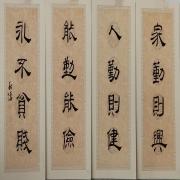 家勤則興
人勤則健
能勤能儉
永不貧賤